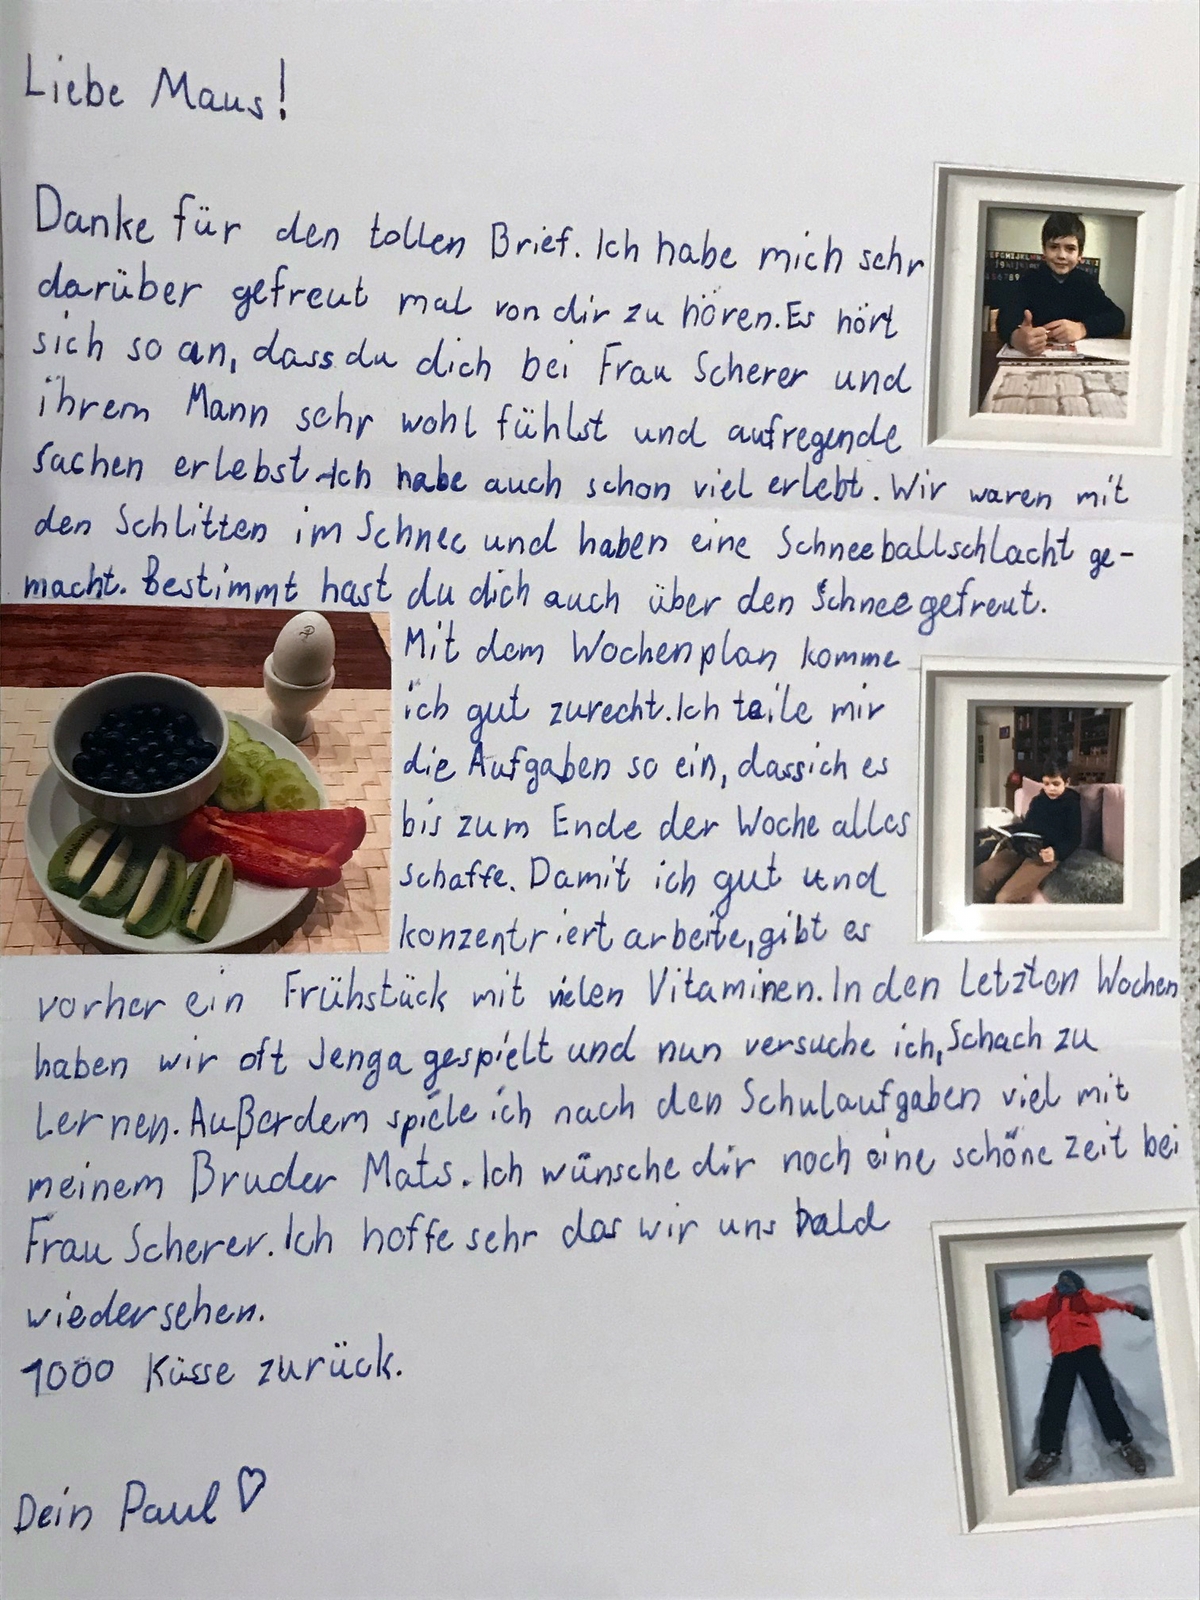 Liebe Maus!
Danke für den tollen Brief. Ich habe mich sehr
darüber gefreut mal von dir zu hören. Es hört
sich so an, dass du dich bei Frau Scherer und
ihrem Mann sehr wohl fühlst und aufregende
Sachen erlebst. Ich habe auch schon viel erlebt. Wir waren mit
den Schlitten im Schnee und haben eine Schneeballschlacht ge-
macht. Bestimmt hast du dich auch über den Schnee gefreut.
Mit dem Wochenplan komme
ich gut zurecht. Ich teile mir
die Aufgaben so ein, dass ich es
bis zum Ende der Woche alles
schaffe. Damit ich gut und
konzentriert arbeite, gibt es
vorher ein Frühstück mit vielen Vitaminen. In den letzten Wochen
haben wir oft Jenga gespielt und nun versuche ich, Schach zu
Lernen. Außerdem spiele ich nach den Schulaufgaben viel mit
meinem Bruder Mats. Ich wünsche dir noch eine schöne Zeit bei
Frau Scherer. Ich hoffe sehr das wir uns bald
wiedersehen.
1000 Küsse zurück.
Dein Paul ♡